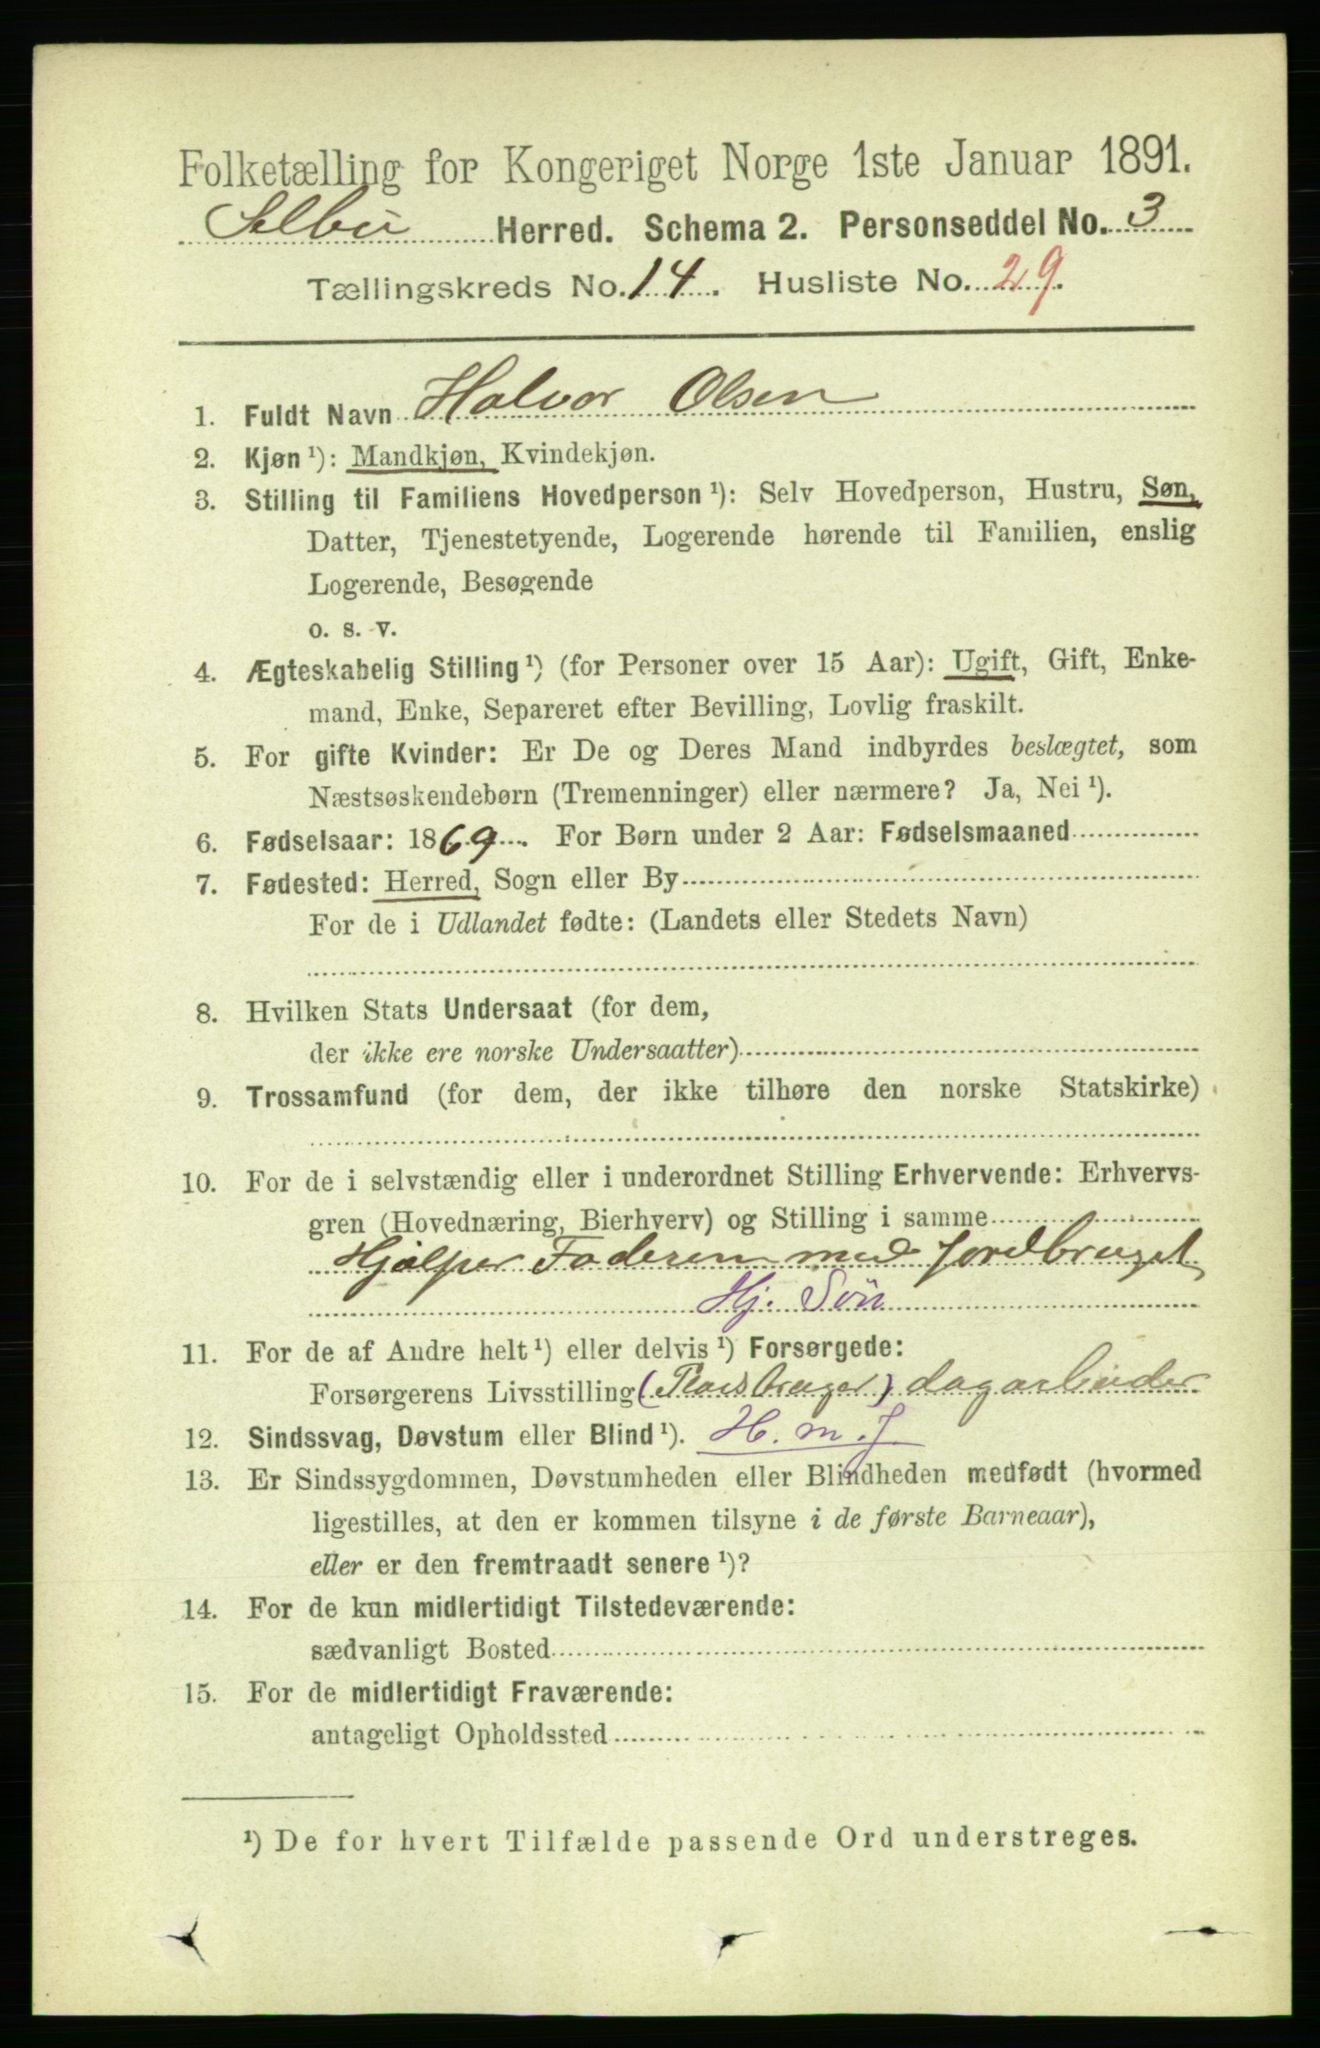 Folketælling for Kongeriget Norge 1ste Januar 1891.
Selbu Herred. Schema 2. Personseddel No. 3
Tællingskreds No. 14. Husliste No. 29.
1. Fuldt Navn Halvor Olsen
2. Kjøn ¹): Mandkjøn, Kvindekjøn.
3. Stilling til Familiens Hovedperson ¹): Selv Hovedperson, Hustru, Søn,
Datter, Tjenestetyende, Logerende hørende til Familien, enslig
Logerende, Besøgende
o. s. v.
4. Ægteskabelig Stilling ¹) (for Personer over 15 Aar): Ugift, Gift, Enke-
mand, Enke, Separeret efter Bevilling, Lovlig fraskilt.
5. For gifte Kvinder: Er De og Deres Mand indbyrdes beslægtet, som
Næstsøskendebørn (Tremenninger) eller nærmere? Ja, Nei ¹).
6. Fødselsaar: 1869. For Børn under 2 Aar: Fødselsmaaned
7. Fødested: Herred, Sogn eller By
For de i Udlandet fødte: (Landets eller Stedets Navn)
8. Hvilken Stats Undersaat (for dem,
der ikke ere norske Undersaatter)
9. Trossamfund (for dem, der ikke tilhøre den norske Statskirke)
10. For de i selvstændig eller i underordnet Stilling Erhvervende: Erhvervs-
gren (Hovednæring, Bierhverv) og Stilling i samme
Hjælper Faderen med jordbruget
Hj. Søn
11. For de af Andre helt ¹) eller delvis ¹) Forsørgede:
Forsørgerens Livsstilling (Pladsbruger) dagarbeider
12. Sindssvag, Døvstum eller Blind ¹). H. m. J.
13. Er Sindssygdommen, Døvstumheden eller Blindheden medfødt (hvormed
ligestilles, at den er kommen tilsyne i de første Barneaar),
eller er den fremtraadt senere ¹)?
14. For de kun midlertidigt Tilstedeværende:
sædvanligt Bosted
15. For de midlertidigt Fraværende:
antageligt Opholdssted
¹) De for hvert Tilfælde passende Ord understreges.